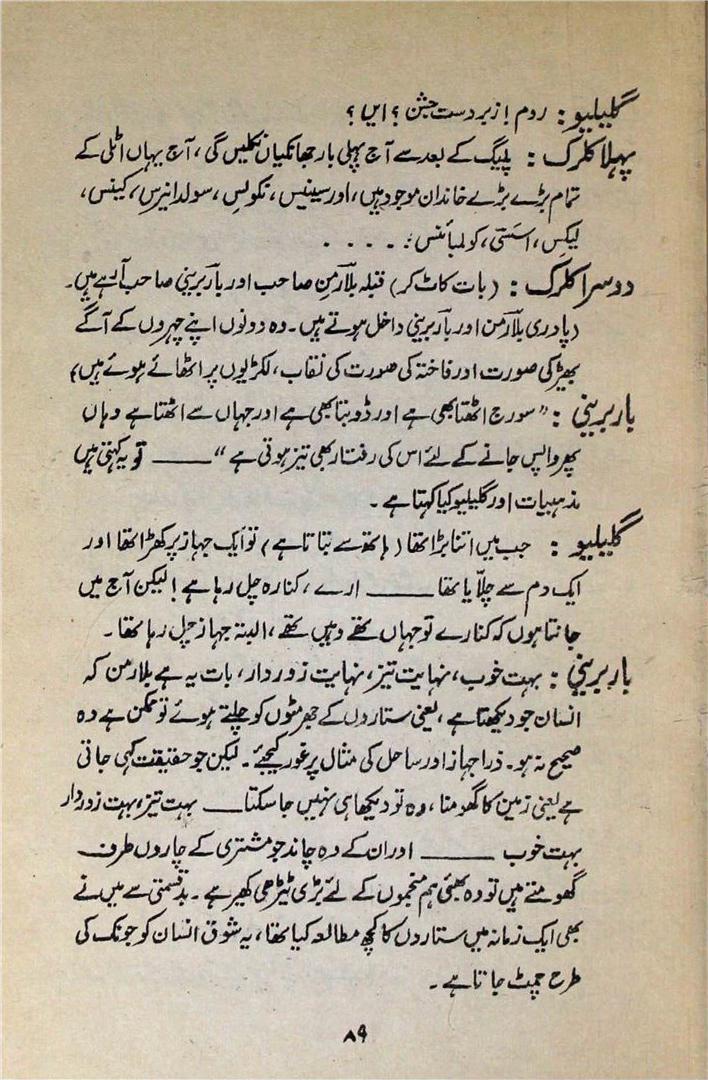 گلیلیو : روم ! زبردست جشن ؟ ایں ؟
پہلا کلرک : پلیگ کے بعد سے آج پہلی بار جھانکیاں نکلیں گی ، آج یہاں اٹلی کے
تمام بڑے بڑے خاندان موجود ہیں ، اورسینیس ، نکولس ، سولدانیرس ، کینس ،
لیکس ، استتی ، کولمبائنس : . . . .
دوسرا کلرک : ( بات کاٹ کر ) قبلہ بلارمن صاحب اور باربرینی صاحب آرہے ہیں۔
( پادری بلارمن اور باربرینی داخل ہوتے ہیں ۔ وہ دونوں اپنے چہروں کے آگے
بھیڑ کی صورت اور فاختہ کی صورت کی نقاب ، لکڑیوں پر اٹھائے ہوئے ہیں )
باربرینی : " سورج اٹھتا بھی ہے اور ڈوبتا بھی ہے اور جہاں سے اٹھتا ہے وہاں
پھر واپس جانے کے لئے اس کی رفتار بھی تیز ہوتی ہے " ــــــ تو یہ کہتی ہیں
مذہبیات اور گلیلیو کیا کہتا ہے ۔
گلیلیو : جب میں اتنا بڑا تھا ( ہاتھ سے بتاتا ہے ) تو ایک جہاز پر کھڑا تھا اور
ایک دم سے چلّایا تھا ــــــ ارے ، کنارہ چل رہا ہے ! لیکن آج میں
جانتا ہوں کہ کنارے تو جہاں تھے وہیں تھے ، البتہ جہاز چل رہا تھا ۔
باربرینی : بہت خوب ، نہایت تیز ، نہایت زوردار ، بات یہ ہے بلارمن کہ
انسان جو دیکھتا ہے ، یعنی ستاروں کے جھرمٹوں کو چلتے ہوئے تو ممکن ہے وہ
صحیح نہ ہو ۔ ذرا جہاز اور ساحل کی مثال پر غور کیجئے ۔ لیکن جو حقیقت کہی جاتی
ہے یعنی زمین کا گھومنا ، وہ تو دیکھا ہی نہیں جا سکتا ــــ بہت تیز ، بہت زوردار
بہت خوب ــــــ اور ان کے وہ چاند جو مشتری کے چاروں طرف
گھومتے ہیں تو وہ بھئی ہم منجموں کے لئے بڑی ٹیڑھی کھیر ہے ۔ بدقسمتی سے میں نے
بھی ایک زمانہ میں ستاروں کا کچھ مطالعہ کیا تھا ، یہ شوق انسان کو جونک کی
طرح چمٹ جاتا ہے ۔
۸۹